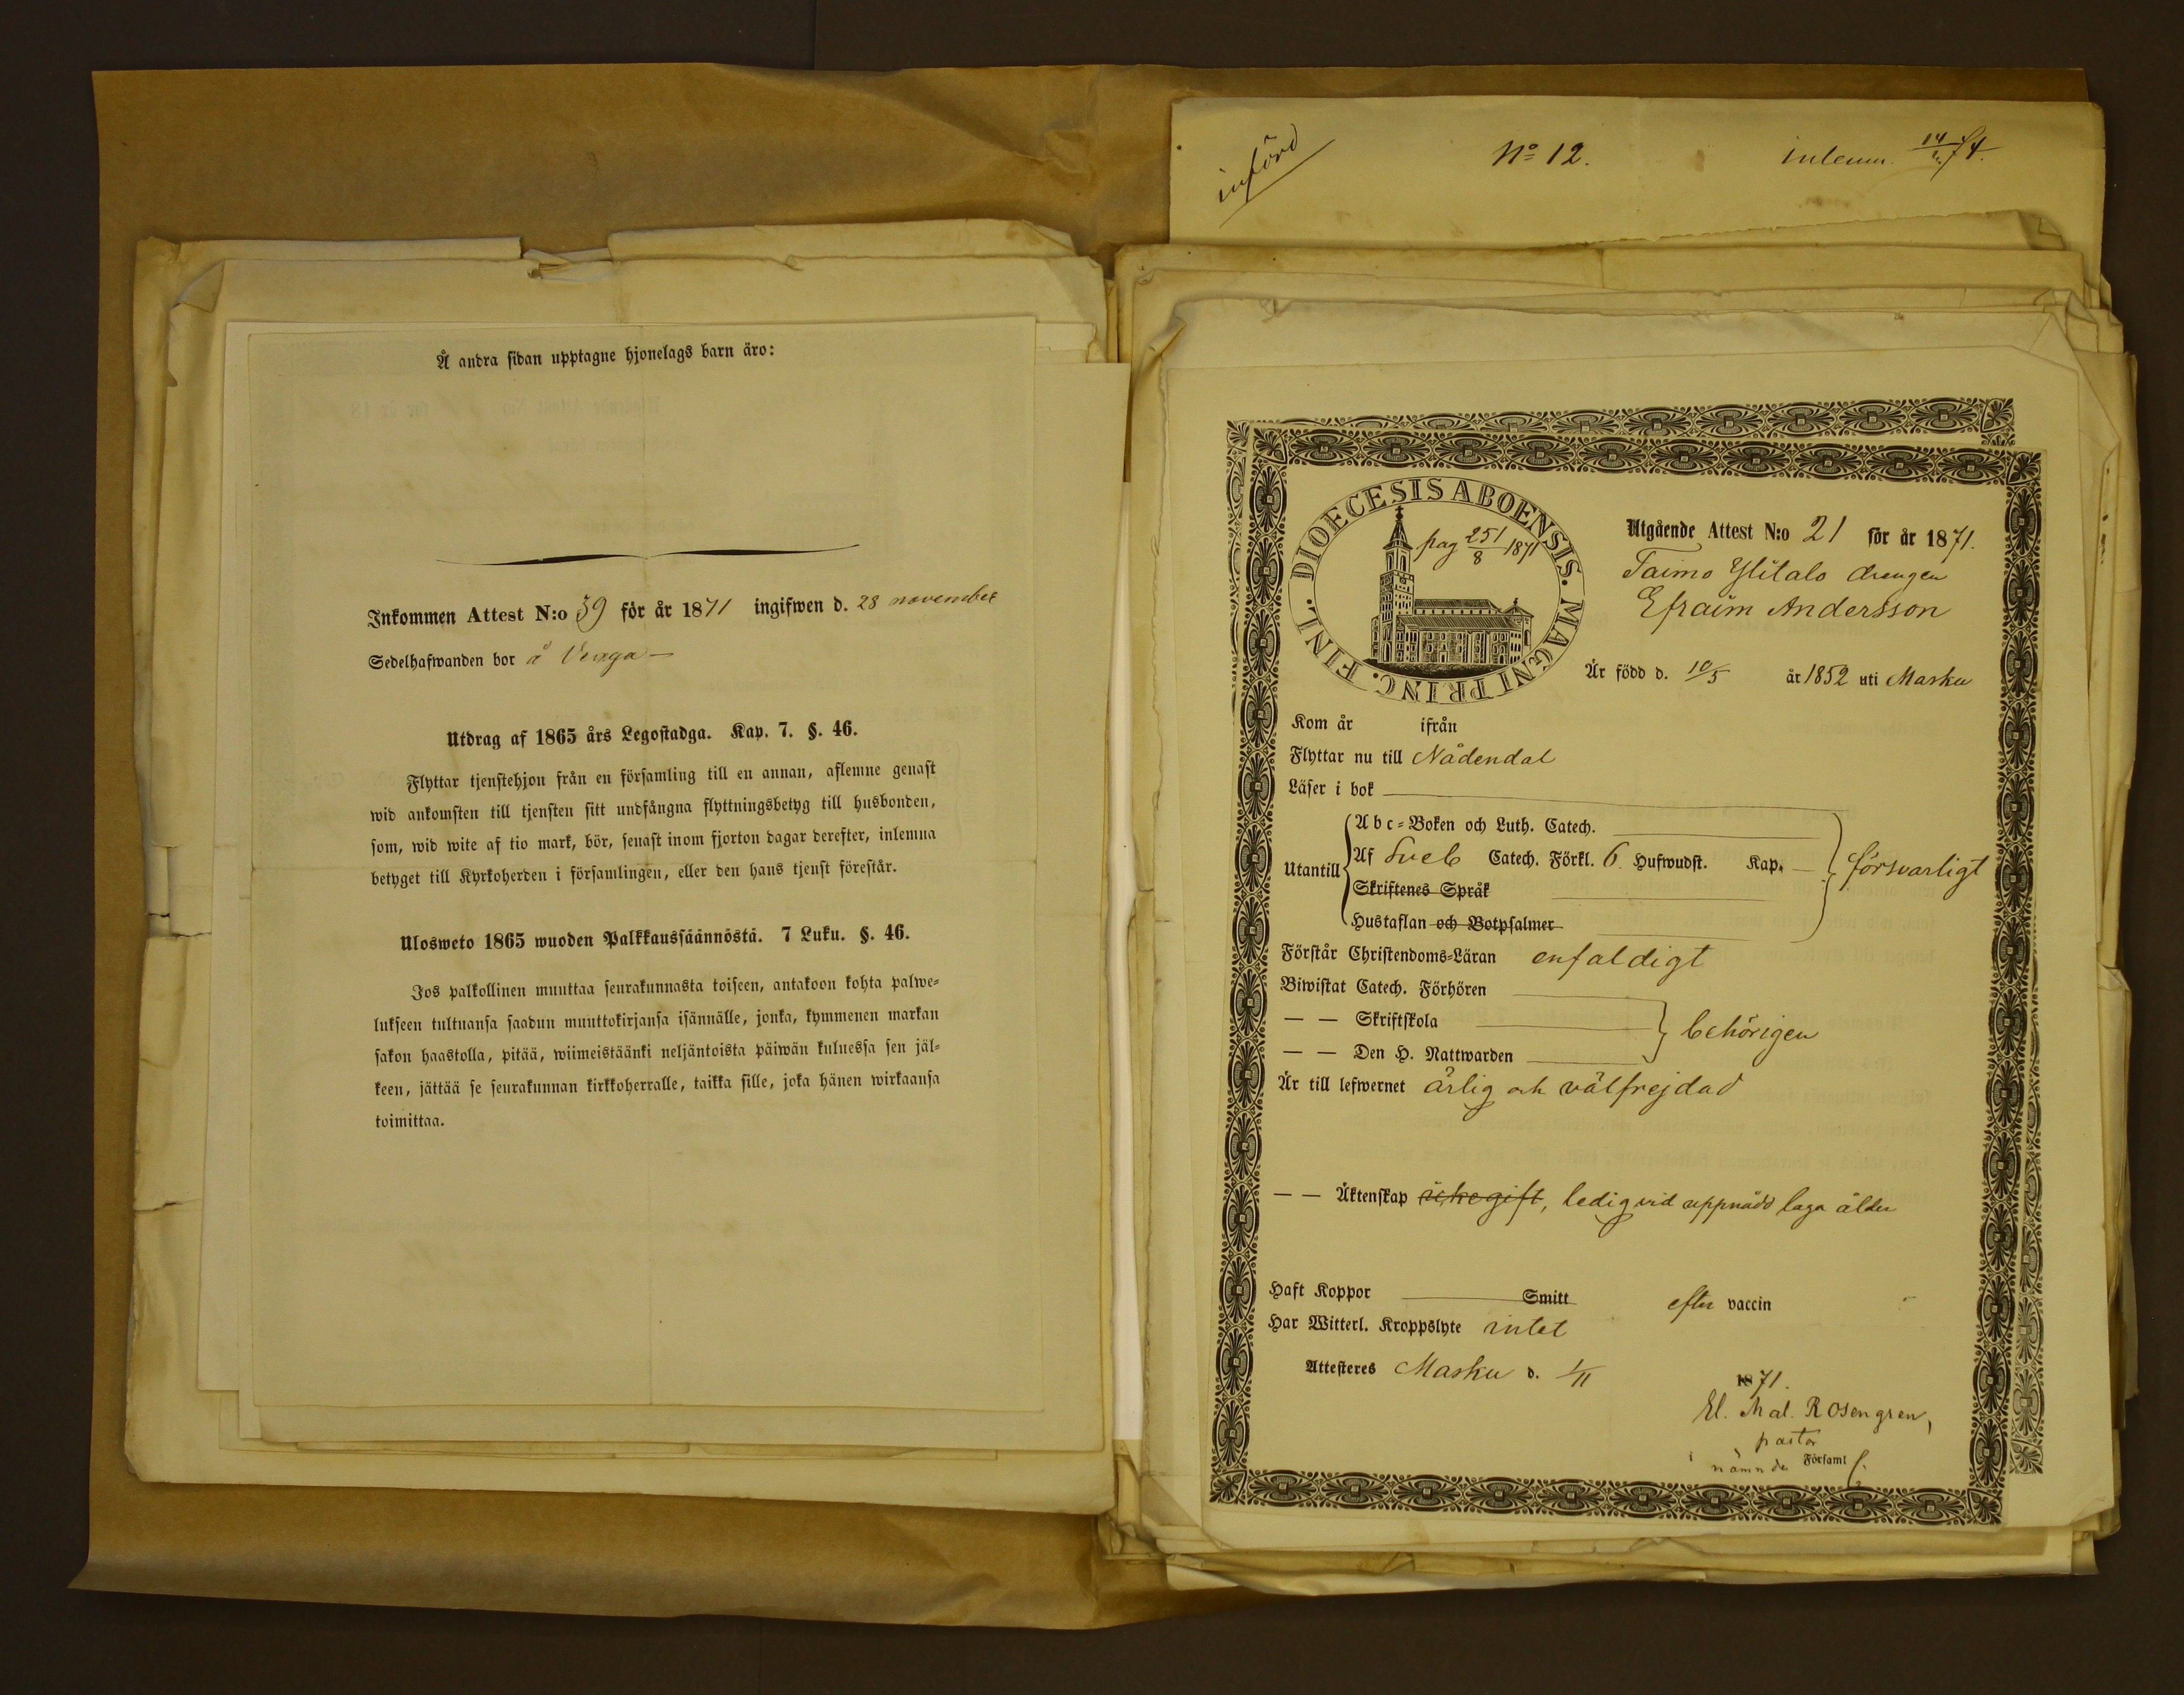 Å andra sidan upptagne hjonelags barn äro:
Inkommen Attest N:o 39 för år 1871 ingifwen d. 28 november
Sedelhafwanden bor å
Utdrag af 1865 års Legostadga. Kap. 7. §. 46.
Flyttar tjenstehjon från en församling till en annan, aflemne genast
wid ankomsten till tjensten sitt undfångna flyttningsbetyg till husbonden,
som, wid wite af tio mark, bör, senast inom fjorton dagar derefter, inlemna
betyget till Kyrkoherden i församlingen, eller den hans tjenst förestår.
Ulosweto 1865 wuoden Palkkaussäännöstä. 7 Luku. §. 46.
Jos palkollinen muuttaa seurakunnasta toiseen, antakoon kohta palwe-
lukseen tultuansa saadun muuttokirjansa isännälle, jonka, kymmenen markan
sakon haastolla, pitää, wiimeistäänki neljäntoista päiwän kuluessa sen jäl-
keen, jättää se seurakunnan kirkkoherralle, taikka sille, joka hänen wirkaansa
toimittaa.
införd
No 12.
inlemn. 74.
DIOECESIS ABOENSIS. MAGNI PRINC. FINL.
pag 251/8 1871
Utgående Attest N:o 21 för år 1871.
Taimo Ylitalo drengen
Efraim Andersson
Är född d. 10/5 år 1852 uti Masku
Kom år ifrån
Flyttar nu till Nådendal
Läser i bok
Utantill
Abc-Boken och Luth. Catech.
Af Sveb Catech. Förkl. 6 Hufwudst. Kap. —
försvarligt
Skriftenes Språk
Hustaflan och Botpsalmer
Förstår Christendoms-Läran enfaldigt
Biwistat Catech. Förhören
— — Skriftskola
behörigen
— — Den H. Nattwarden
Är till lefwernet ärlig och välfrejdad
— — Äktenskap icke gift, ledig vid uppnådd laga ålder
Haft Koppor Smitt efter vaccin
Har Witterl. Kroppslyte intet
Attesteres Masku d. 1/11 1871.
El. Mal. Rosengren,
pastor
i nämnde Församl.